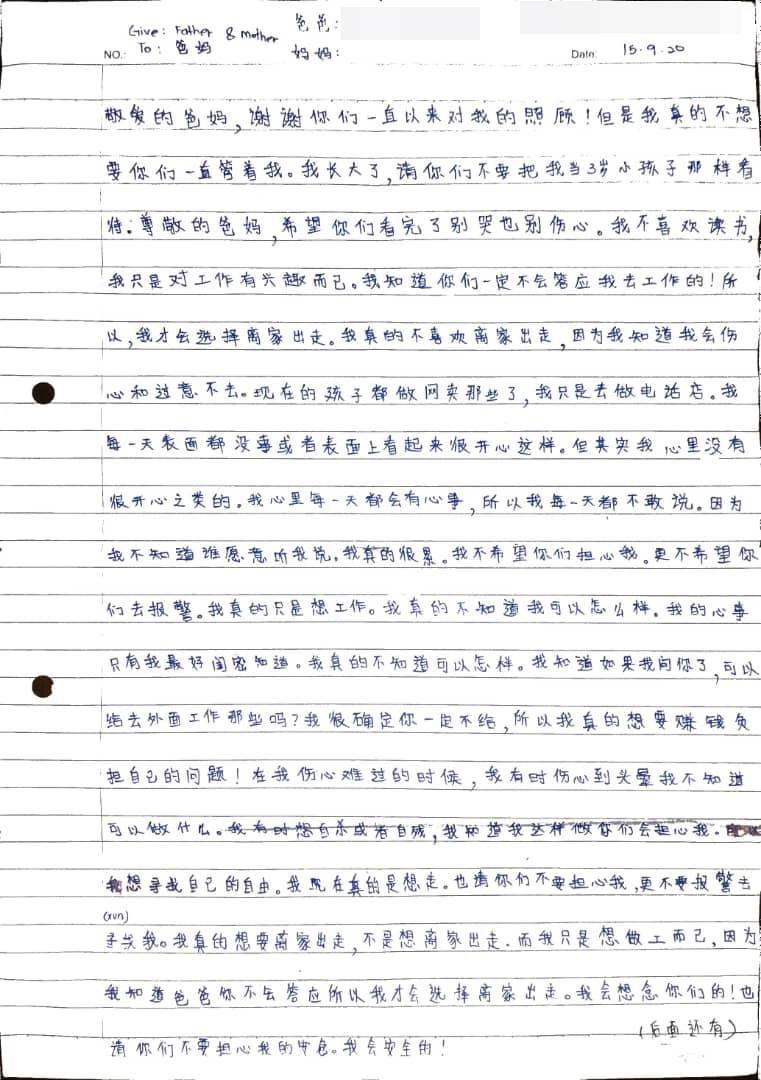 Give: Father & mother 爸爸:
NO.: To: 爸妈 妈妈: Date: 15.9.20
敬爱的爸妈,谢谢你们一直以来对我的照顾!但是我真的不想
要你们一直管着我。我长大了,请你们不要把我当3岁小孩子那样看
待.尊敬的爸妈,希望你们看完了别哭也别伤心。我不喜欢读书,
我只是对工作有兴趣而已。我知道你们一定不会答应我去工作的!所
以,我才会选择离家出走。我真的不喜欢离家出走,因为我知道我会伤
心和过意不去。现在的孩子都做网卖那些了,我只是去做电话店。我
每一天表面都没事或者表面上看起来很开心这样。但其实我心里没有
很开心之类的。我心里每一天都会有心事,所以我每一天都不敢说。因为
我不知道谁愿意听我说。我真的很累。我不希望你们担心我。更不希望你
们去报警。我真的只是想工作。我真的不知道我可以怎么样。我的心事
只有我最好闺密知道。我真的不知道可以怎样。我知道如果我问你了,可以
给去外面工作那些吗?我很确定你一定不给,所以我真的想要赚钱负
担自己的问题!在我伤心难过的时候,我有时伤心到头晕我不知道
可以做什么。我有时想自杀或者自残,我知道我这样做你们会担心我.
我想寻找自己的自由。我现在真的是想走。也请你们不要担心我,更不要报警去
(xun)
寻找我。我真的想要离家出走,不是想离家出走.而我只是想做工而已,因为
我知道爸爸你不会答应所以我才会选择离家出走。我会想念你们的!也
(后面还有)
请你们不要担心我的安危。我会安全的!